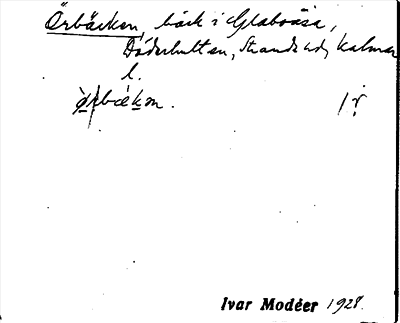 Örbäcken, bäck i Glabo ása,
Döderhultsn, Stranda hd, Kalmar
l.
ørbækən. 1 r
Ivar Modéer 1928.